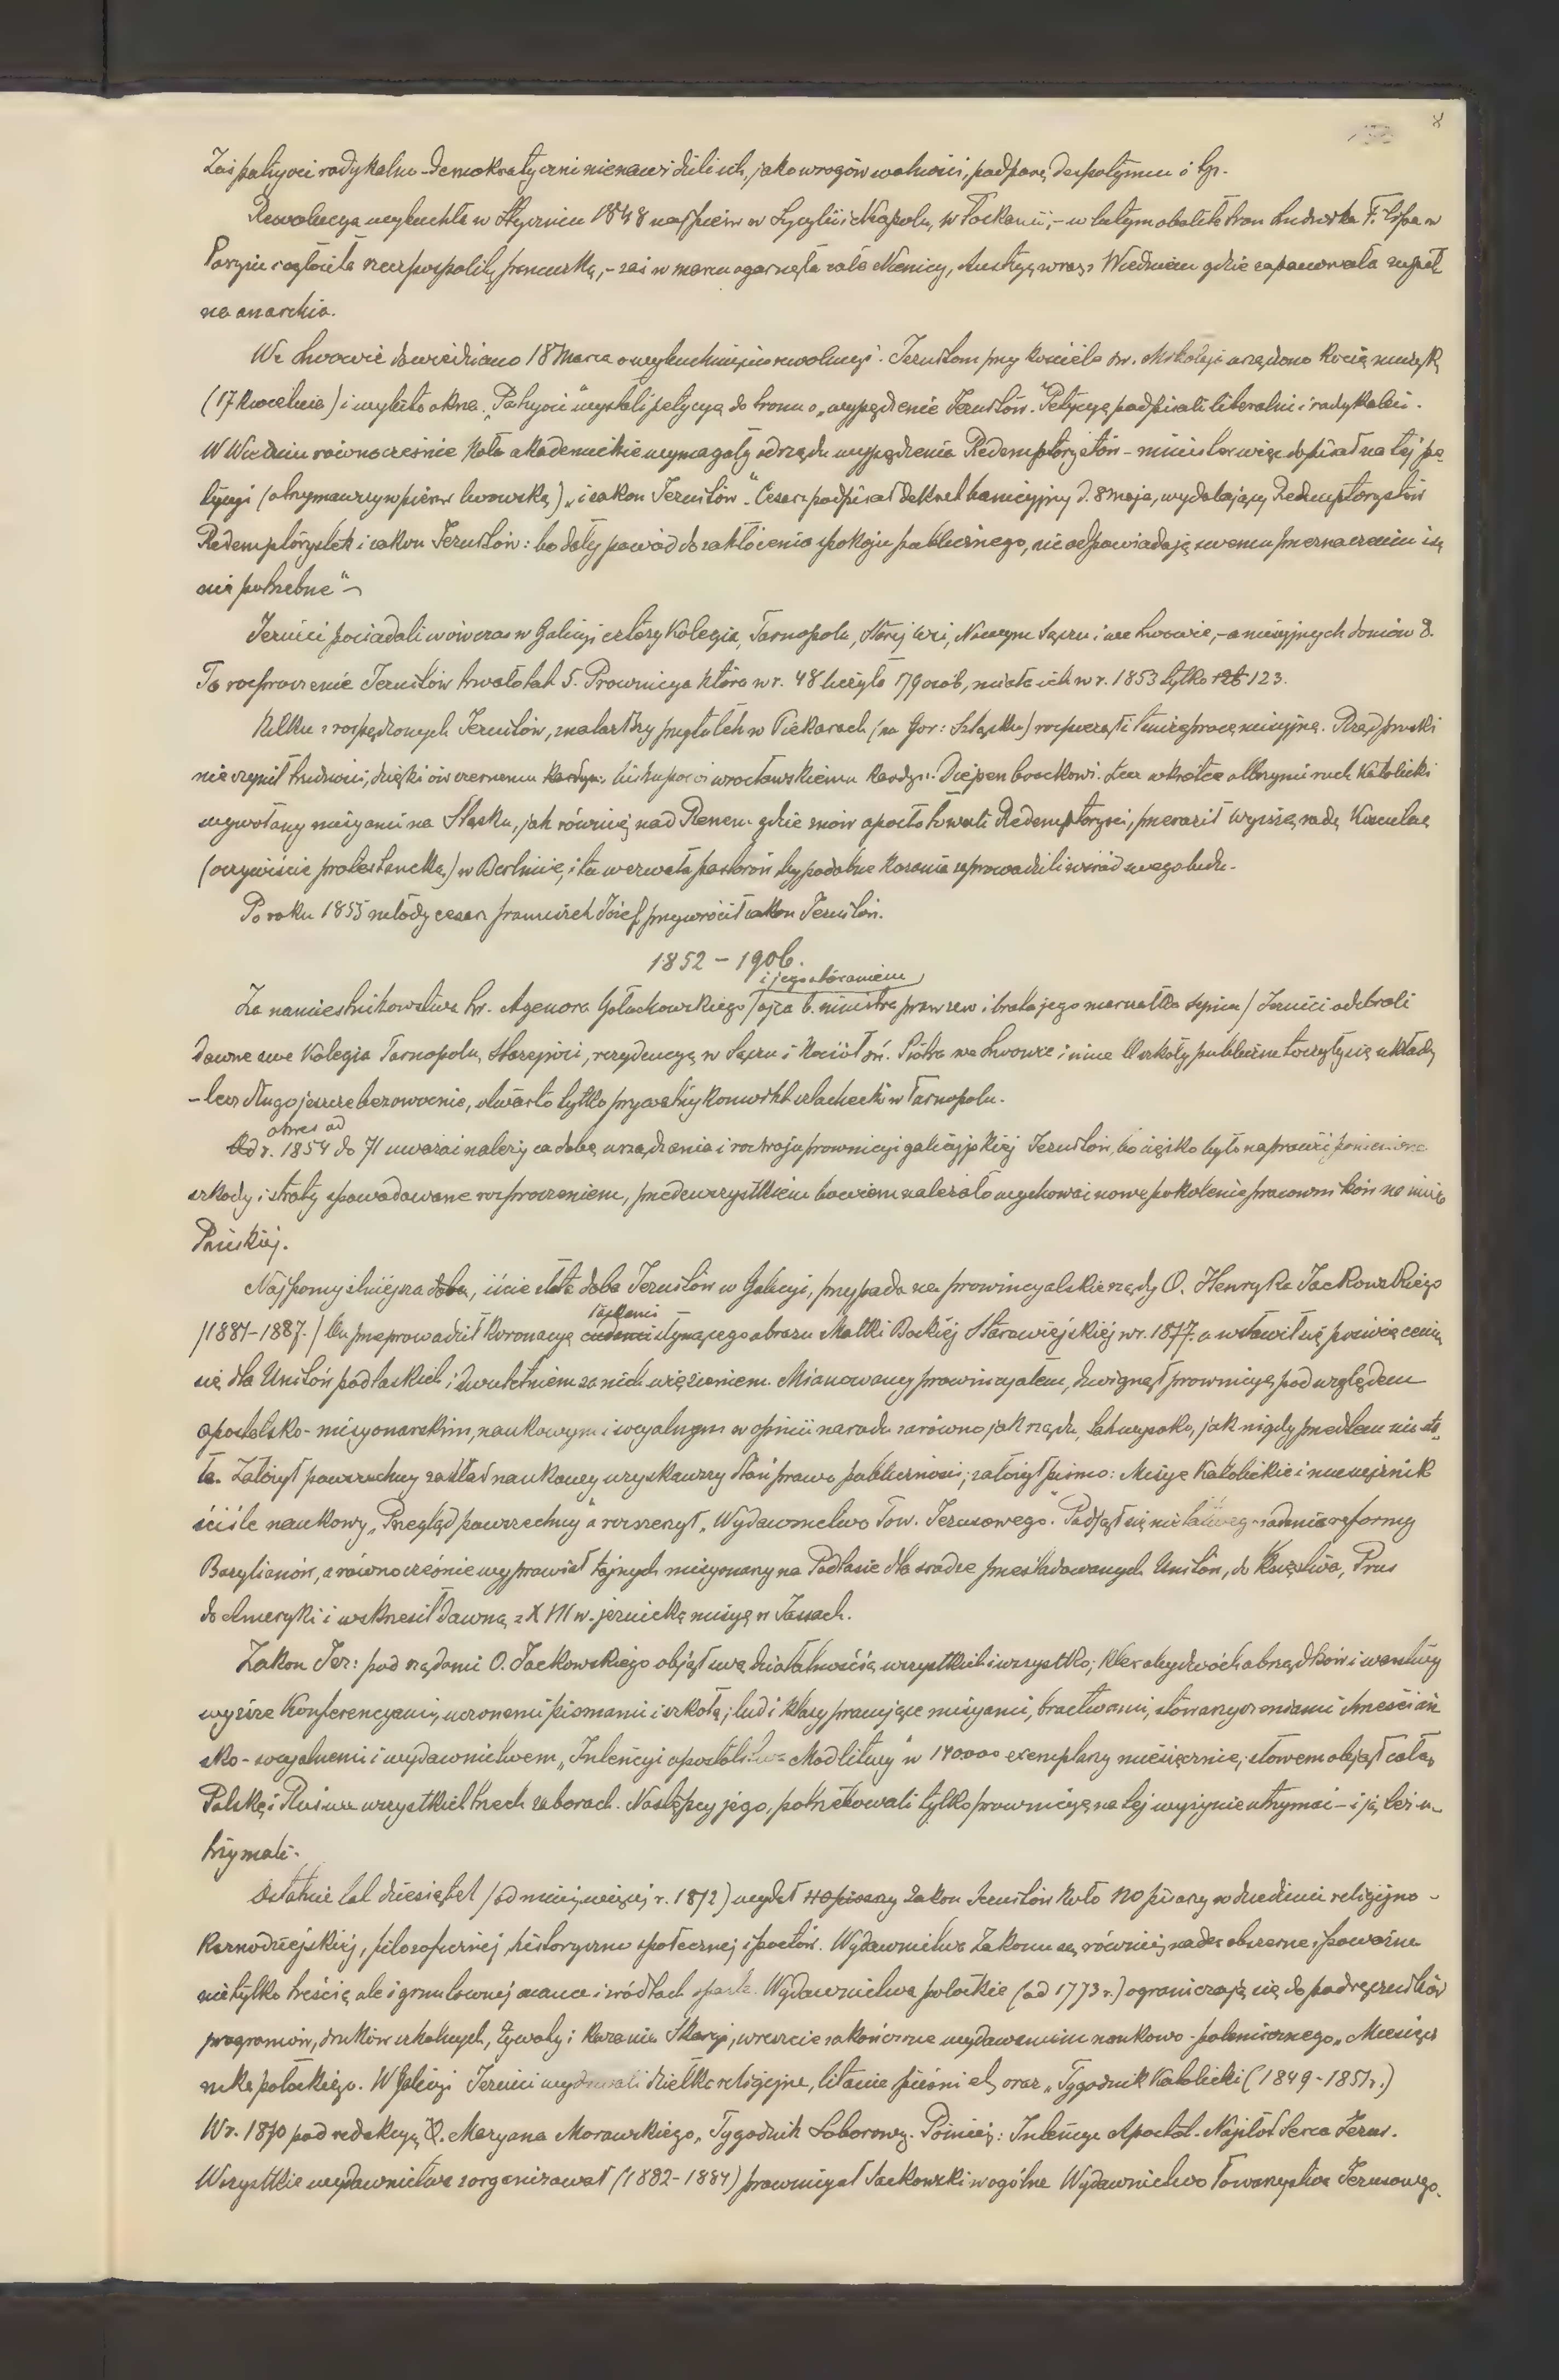 8
Zaś patryoci radykalno-demokratyczni nienawidzili ich, jako wrogów wolności, podporę despotyzmu i tp.
Rewolucya wybuchła w Styczniu 1848 najpierw w Sycylii i Neapolu, w Toskanii, – w lutym obaliła tron Ludwika Filipa w
Paryżu i ogłosiła rzeczpospolitę francuską, – zaś w marcu ogarnęła całe Niemcy, Austryę wraz z Wiedniem gdzie zapanowała zupeł
na anarchia.
We Lwowie dowiedziano 18 Marca o wybuchnięciu rewolucyi. Jezuitom przy kościele św. Mikołaja urządzono kocią muzykę
(17 Kwietnia) i wybito okna. „Patryoci" wysłali petycyę do tronu o „wypędzenie Jezuitów." Petycyę podpisali liberalni i radykalni.
W Wiedniu równocześnie koła akademickie wymagały od rządu wypędzenia Redemptorystów – minister więc dopisał na tej pe
tycyi (otrzymawszy wpierw lwowską) „i zakon Jezuitów". Cesarz podpisał dekret banicyjny d. 8 maja, wydalający Redemptorystów
Redemptorystek i zakon Jezuitów: bo dały powód do zakłócenia spokoju publicznego, nie odpowiadają swemu przeznaczeniu i są
nie potrzebne"–
Jezuici posiadali wówczas w Galicyi cztery Kolegia, Tarnopolu, Starej wsi, Nowym Sączu i we Lwowie, – a misyjnych domów 8.
To rozproszenie Jezuitów trwało lat 5. Prowincya która w r. 48 liczyła 179 osób, miała ich w r. 1853 tylko 123.
Kilku z rozpędzonych Jezuitów, znalazłszy przytułek w Piekarach (na Gór: Szląsku) rozpoczęli tamże pracę misyjną. Rząd pruski
nie czynił trudności, dzięki ówczesnemu biskupowi wrocławskiemu Kardyn. Diepenbrockowi. Lecz wkrótce olbrzymi ruch Katolicki
wywołany misyami na Sląsku, jak również nad Renem gdzie znów apostołowali Redemptoryści, przeraził wyższą radę Kościelną
(oczywiście protestancką) w Berlinie, i ta wezwała pastorów by podobne kazania zaprowadzili wśród swego ludu.
Po roku 1855 młody cesarz Franciszek Józef przywrócił zakon Jezuitów.
1852 – 1906.
i jego staraniem
Za namiestnikowstwa hr. Agenora Gołuchowskiego /ojca b. ministra praw zew i brata jego marszałka sejmu/ Jezuici odebrali
dawne swe Kolegia Tarnopolu, Starejwsi, rezydencyę w Sączu i Kościół św. Piotra we Lwowie i inne O szkoły publiczne toczyły się układy
– lecz długo jeszcze bezowocnie, otwarto tylko prywatny konwikt szlachecki w Tarnopolu.
okres od
Od r. 1854 do 71 uważać należy za dobę urządzenia i rozwoju prowincyi galicyjskiej Jezuitów, bo ciężko było naprawić poniesione
szkody i straty spowodowane rozproszeniem, przedewszystkiem bowiem należało wychować nowe pokolenie pracowników na niwie
Pańskiej.
Najpomyślniejsza doba, iście złota doba Jezuitów w Galicyi, przypada na prowincyalskie rządy O. Henryka Jackowskiego
łaskami
/1881–1887./ On przeprowadził Koronacyę cudami słynącego obrazu Matki Boskiej Starowiejskiej w r. 1877. a wsławił się poświęceniem
się dla Unitów podlaskich i dwuletniem za nich więzieniem. Mianowany prowincyałem, dźwignął prowincyę pod względem
apostolsko-misyonarskim, naukowym i socyalnym w opinii narodu zarówno jak rządu, tak wysoko, jak nigdy przedtem nie sta„
ła. Założył powszechny zakład naukowy uzyskawszy dlań prawo publiczności; założył pismo: Misye Katolickie i miesięcznik
ściśle naukowy „Przegląd powszechny" a rozszerzył „Wydawnictwo Tow. Jezusowego." Podjął się niełatwego zadania reformy
Bazylianów, a równocześnie wyprawiał tajnych misyonarzy na Podlasie dla srodze prześladowanych Unitów, do Królestwa, Prus
do Ameryki i wskrzesił dawną z XVII w. jezuicką misyę w Jassach.
Zakon Jez: pod rządami O. Jackowskiego objął swą działalnością wszystkich i wszystko; kler obydwóch obrządków i warstwy
wyższe Konferencyami, uczonemi pismami i szkołą; lud i klasy pracujące misyami, bractwami, stowarzyszeniami chrześciań
sko-socyalnemi i wydawnictwem „Intencyi apostolstwa Modlitwy" w 140000 exemplarzy miesięcznie, słowem objął całą
Polskę i Ruś we wszystkich trzech zaborach. Następcy jego, potrzebowali tylko prowincyę na tej wyżynie utrzymać – i ją też u–
trzymali.
Ostatnie lat dziesiątek /od mniej więcej r. 1872) wydał zakon Jezuitów koło 120 pisarzy w dziedzinie religijno –
Kaznodziejskiej, filozoficznej, historyczno społecznej i poetów. Wydawnictwa Zakonu są również nader obszerne i poważne
nie tylko treścią ale i gruntownej nauce i źródłach oparte. Wydawnictwa połockie (od 1773 r.) ograniczają się do podręczników
programów, druków szkolnych, Żywoty i Kazania Skargi, wreszcie zakończone wydawaniem naukowo-polemicznego „Miesięcz
nika połockiego. W Galicyi Jezuici wydawali dziełka religijne, litanie pieśni etc. oraz „Tygodnik Katolicki (1849–1851 r.)
W r. 1870 pod redakcyą O. Maryana Morawskiego, „Tygodnik Soborowy. Poźniej: Intencye Apostol. Najsłod. Serca Jezus.
Wszystkie wydawnictwa zorganizował (1882–1884) prowincyał Jackowski w ogólne Wydawnictwo Towarzystwa Jezusowego.